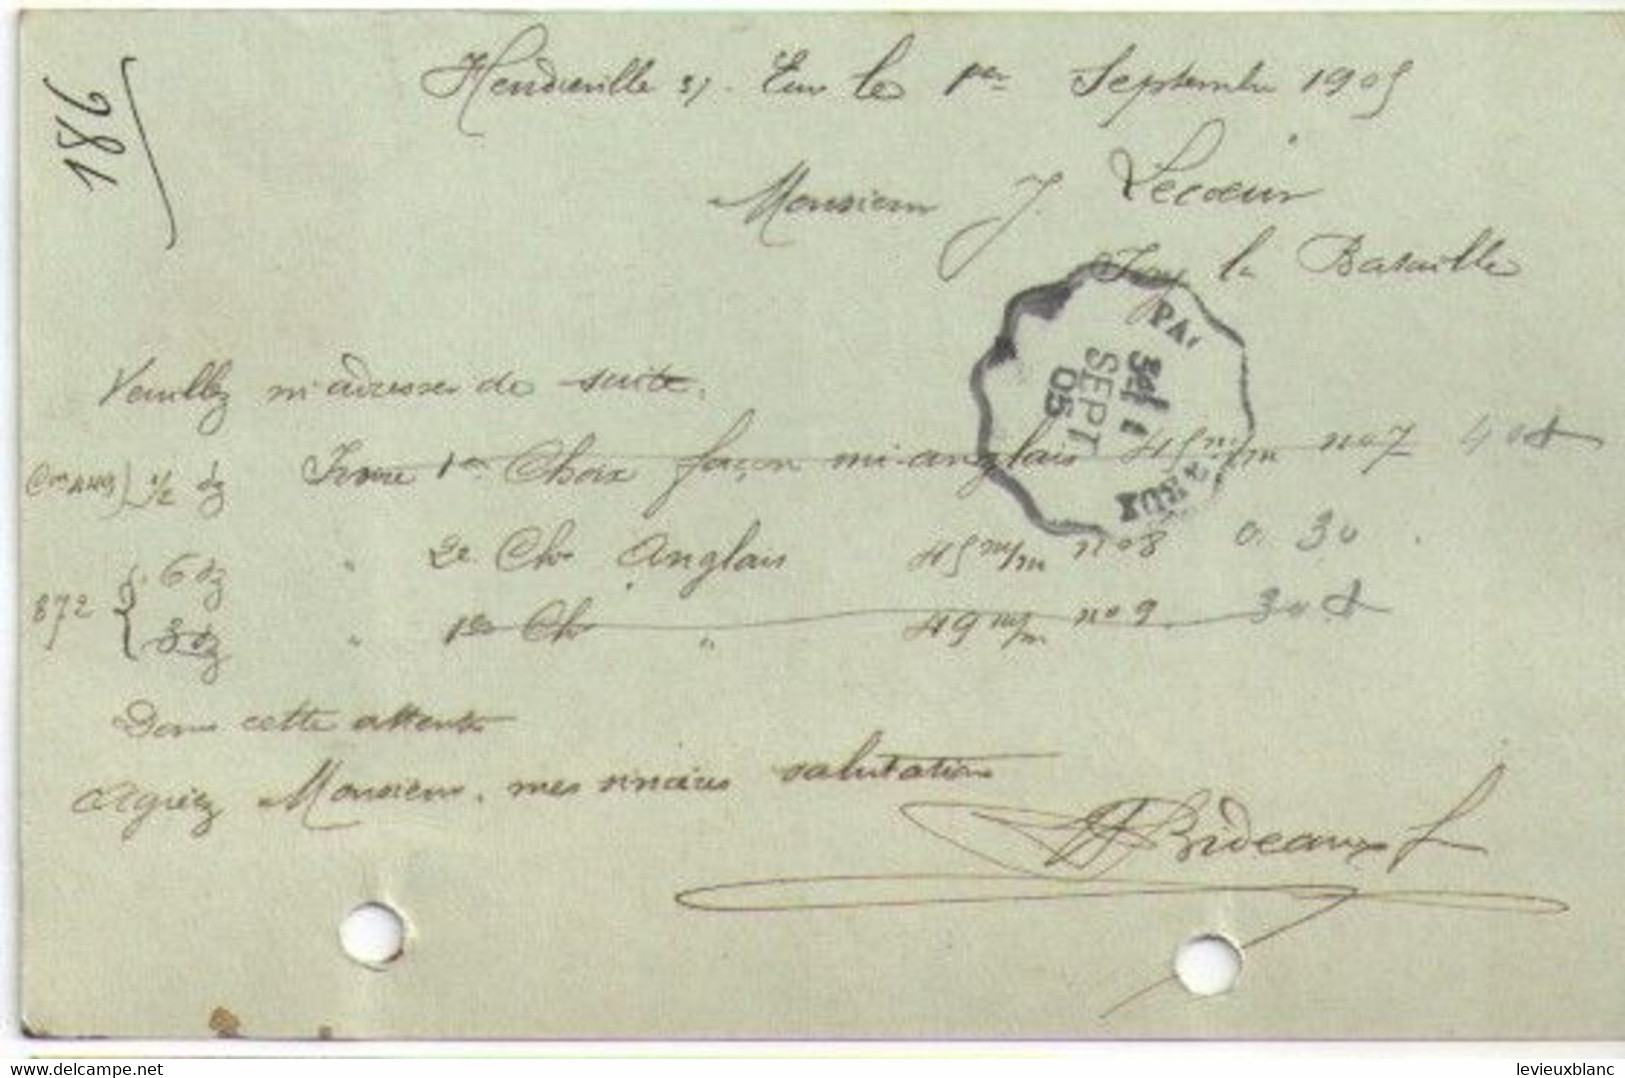 186
Heudreville s/. Eure le 1er Septembre 1905
Monsieur J. Lecoeur
Ivry la Bataille
PA
1
SEPT
05
Veuillez m'adresser de suite.
1/2 dz Ivoire 1er Choix façon mi-anglais 45 m/m no 7 40
6 dz " 2e Ch. Anglais 45 m/m no 8 0.30
872 { 3 dz " 1er Ch " 49 m/m no 9 30
Dans cette attente
Agréez Monsieur, mes sincères salutations
Bideaux
delcampe.net
levieuxblanc